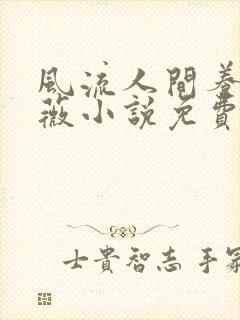 風流人間養
薇小說免費
士貴智志手冢